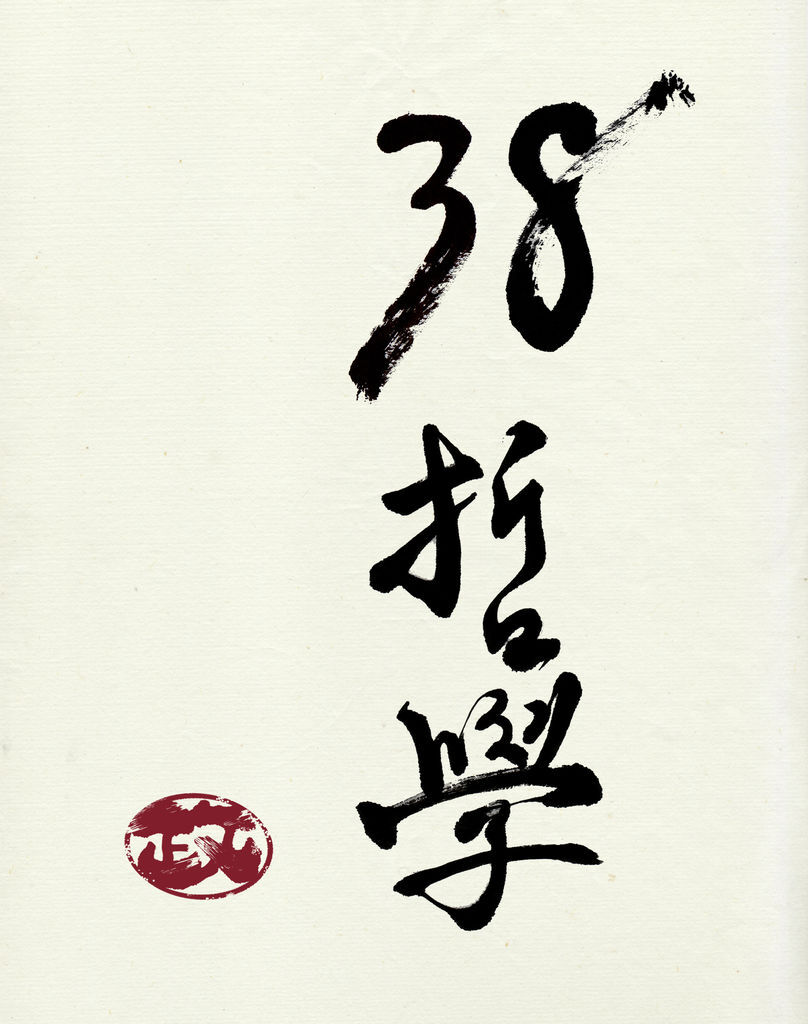 38
哲
學
政